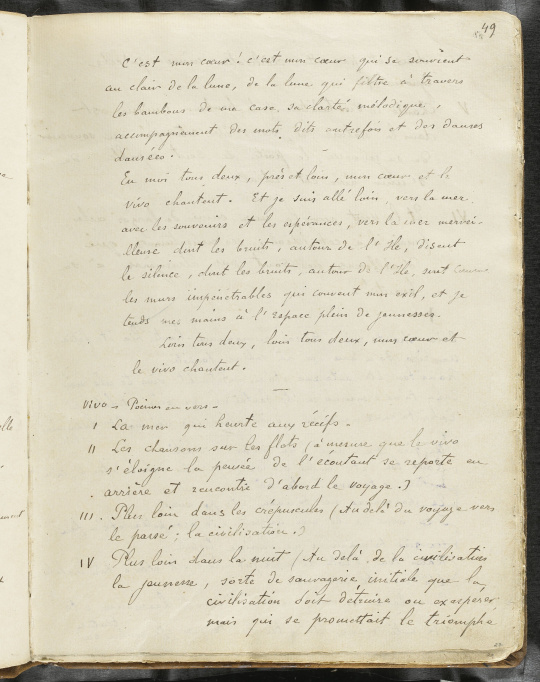 49
C'est mon cœur ! c'est mon cœur qui se souvient
au clair de la lune, de la lune qui filtre à travers
les bambous de ma case sa clarté mélodique,
accompagnement des mots dits autrefois et des danses
dansées.
En moi tous deux, près et loin, mon cœur et le
vivo chantent. Et je suis allé loin, vers la mer
avec les souvenirs et les espérances, vers la mer merveil-
leuse dont les bruits, autour de l'Ile, disent
le silence, dont les bruits, autour de l'Ile, sont comme
les murs impénétrables, qui couvent mon exil, et je
tends mes mains à l'espace plein de jeunesses.
Loin tous deux, loin tous deux, mon cœur et
le vivo chantent.
Vivo - Poèmes en vers -
I La mer qui heurte aux récifs -
II Les chansons sur les flots (à mesure que le vivo
s'éloigne la pensée de l'écoutant se reporte en
arrière et rencontre d'abord le voyage.)
III. Plus loin dans les crépuscules (Au delà du voyage vers
le passé ; la civilisation.)
IV Plus loin dans la nuit (Au delà de la civilisation
la jeunesse, sorte de sauvagerie initiale que la
civilisation doit détruire ou exaspérer
mais qui se promettait le triomphe